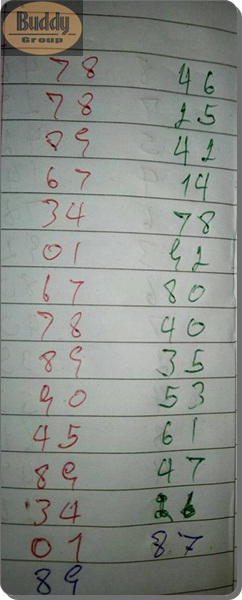 Buddy
Group
78 46
78 25
89 42
67 14
34 78
01 92
67 80
78 40
89 35
90 53
45 61
89 47
34
01 87
89